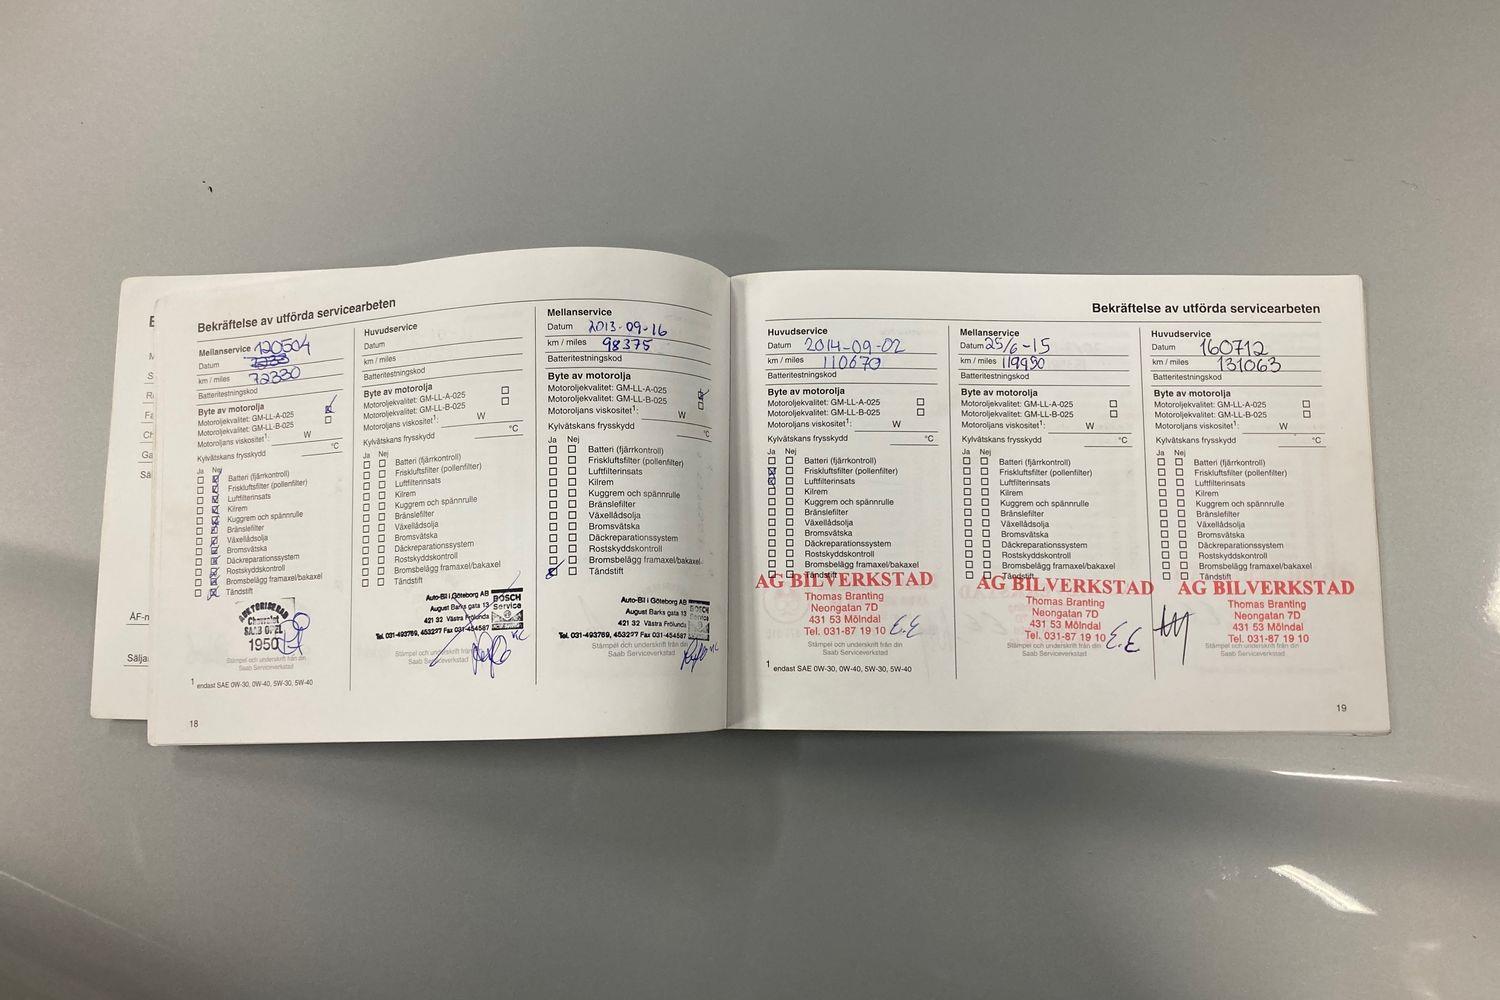 Bekräftelse av utförda servicearbeten
Mellanservice 120504
Datum
km / miles 72330
Batteritestningskod
Byte av motorolja
Motoroljekvalitet: GM-LL-A-025
Motoroljekvalitet: GM-LL-B-025
Motoroljans viskositet¹: W
Kylvätskans frysskydd °C
Ja Nej
Batteri (fjärrkontroll)
Friskluftsfilter (pollenfilter)
Luftfilterinsats
Kilrem
Kuggrem och spännrulle
Bränslefilter
Växellådsolja
Bromsvätska
Däckreparationssystem
Rostskyddskontroll
Bromsbelägg framaxel/bakaxel
Tändstift
AUKTORISERAD
Chevrolet
SAAB OPEL
1950
Stämpel och underskrift från din
Saab Serviceverkstad
¹ endast SAE 0W-30, 0W-40, 5W-30, 5W-40
18
Huvudservice
Datum
km / miles
Batteritestningskod
Byte av motorolja
Motoroljekvalitet: GM-LL-A-025
Motoroljekvalitet: GM-LL-B-025
Motoroljans viskositet¹: W
Kylvätskans frysskydd °C
Ja Nej
Batteri (fjärrkontroll)
Friskluftsfilter (pollenfilter)
Luftfilterinsats
Kilrem
Kuggrem och spännrulle
Bränslefilter
Växellådsolja
Bromsvätska
Däckreparationssystem
Rostskyddskontroll
Bromsbelägg framaxel/bakaxel
Tändstift
Auto-Bil i Göteborg AB
August Barks gata 13
421 32 Västra Frölunda
Tel. 031-493769, 453227 Fax 031-454587
BOSCH
Service
Stämpel och underskrift från din
Saab Serviceverkstad
Mellanservice
Datum 2013-09-16
km / miles 98375
Batteritestningskod
Byte av motorolja
Motoroljekvalitet: GM-LL-A-025
Motoroljekvalitet: GM-LL-B-025
Motoroljans viskositet¹: W
Kylvätskans frysskydd °C
Ja Nej
Batteri (fjärrkontroll)
Friskluftsfilter (pollenfilter)
Luftfilterinsats
Kilrem
Kuggrem och spännrulle
Bränslefilter
Växellådsolja
Bromsvätska
Däckreparationssystem
Rostskyddskontroll
Bromsbelägg framaxel/bakaxel
Tändstift
Auto-Bil i Göteborg AB
August Barks gata 13
421 32 Västra Frölunda
Tel. 031-493769, 453227 Fax 031-454587
BOSCH
Service
Stämpel och underskrift från din
Saab Serviceverkstad
Bekräftelse av utförda servicearbeten
Huvudservice
Datum 2014-09-02
km / miles 110670
Batteritestningskod
Byte av motorolja
Motoroljekvalitet: GM-LL-A-025
Motoroljekvalitet: GM-LL-B-025
Motoroljans viskositet¹: W
Kylvätskans frysskydd °C
Ja Nej
Batteri (fjärrkontroll)
Friskluftsfilter (pollenfilter)
Luftfilterinsats
Kilrem
Kuggrem och spännrulle
Bränslefilter
Växellådsolja
Bromsvätska
Däckreparationssystem
Rostskyddskontroll
Bromsbelägg framaxel/bakaxel
Tändstift
AG BILVERKSTAD
Thomas Branting
Neongatan 7D
431 53 Mölndal
Tel. 031-87 19 10 E.E
Stämpel och underskrift från din
Saab Serviceverkstad
¹ endast SAE 0W-30, 0W-40, 5W-30, 5W-40
Mellanservice
Datum 25/6-15
km / miles 119950
Batteritestningskod
Byte av motorolja
Motoroljekvalitet: GM-LL-A-025
Motoroljekvalitet: GM-LL-B-025
Motoroljans viskositet¹: W
Kylvätskans frysskydd °C
Ja Nej
Batteri (fjärrkontroll)
Friskluftsfilter (pollenfilter)
Luftfilterinsats
Kilrem
Kuggrem och spännrulle
Bränslefilter
Växellådsolja
Bromsvätska
Däckreparationssystem
Rostskyddskontroll
Bromsbelägg framaxel/bakaxel
Tändstift
AG BILVERKSTAD
Thomas Branting
Neongatan 7D
431 53 Mölndal
Tel. 031-87 19 10 E.E
Stämpel och underskrift från din
Saab Serviceverkstad
Huvudservice
Datum 160712
km / miles 131063
Batteritestningskod
Byte av motorolja
Motoroljekvalitet: GM-LL-A-025
Motoroljekvalitet: GM-LL-B-025
Motoroljans viskositet¹: W
Kylvätskans frysskydd °C
Ja Nej
Batteri (fjärrkontroll)
Friskluftsfilter (pollenfilter)
Luftfilterinsats
Kilrem
Kuggrem och spännrulle
Bränslefilter
Växellådsolja
Bromsvätska
Däckreparationssystem
Rostskyddskontroll
Bromsbelägg framaxel/bakaxel
Tändstift
AG BILVERKSTAD
Thomas Branting
Neongatan 7D
431 53 Mölndal
Tel. 031-87 19 10
Stämpel och underskrift från din
Saab Serviceverkstad
19